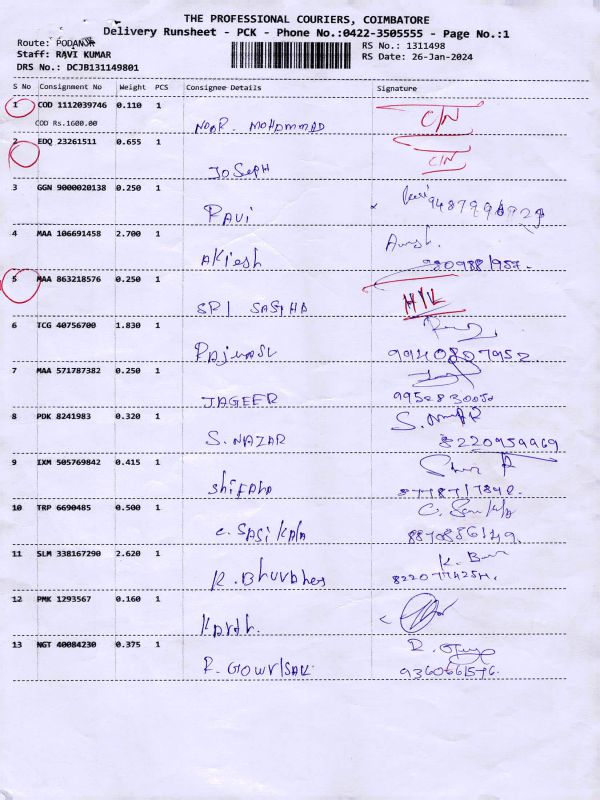 THE PROFESSIONAL COURIERS, COIMBATORE
Delivery Runsheet - PCK - Phone No.:0422-3505555 - Page No.:1
Route: PODANUR
Staff: RAVI KUMAR
DRS No.: DCJB131149801
RS No.: 1311498
RS Date: 26-Jan-2024
S No Consignment No Weight PCS Consignee Details Signature
1 COD 1112039746 0.110 1 NOOR. MOHAMMAD C/N
COD Rs.1600.00
2 EDQ 23261511 0.655 1 JOSEPH C/N
3 GGN 9000020138 0.250 1 RAVI
4 MAA 106691458 2.700 1 AKIESH
5 MAA 863218576 0.250 1 SRI SASTHA H/L
6 TCG 40756700 1.830 1 9940807952
7 MAA 571787382 0.250 1 JAGEER
8 PDK 8241983 0.320 1 S. NAZAR 8220959969
9 IXM 505769842 0.415 1 Shifana
10 TRP 6690485 0.500 1 C. SASIKALA 8870886149
11 SLM 338167290 2.620 1 K. Bhuvanes
12 PMK 1293567 0.160 1
13 NGT 40084230 0.375 1 R. GOWRISAN